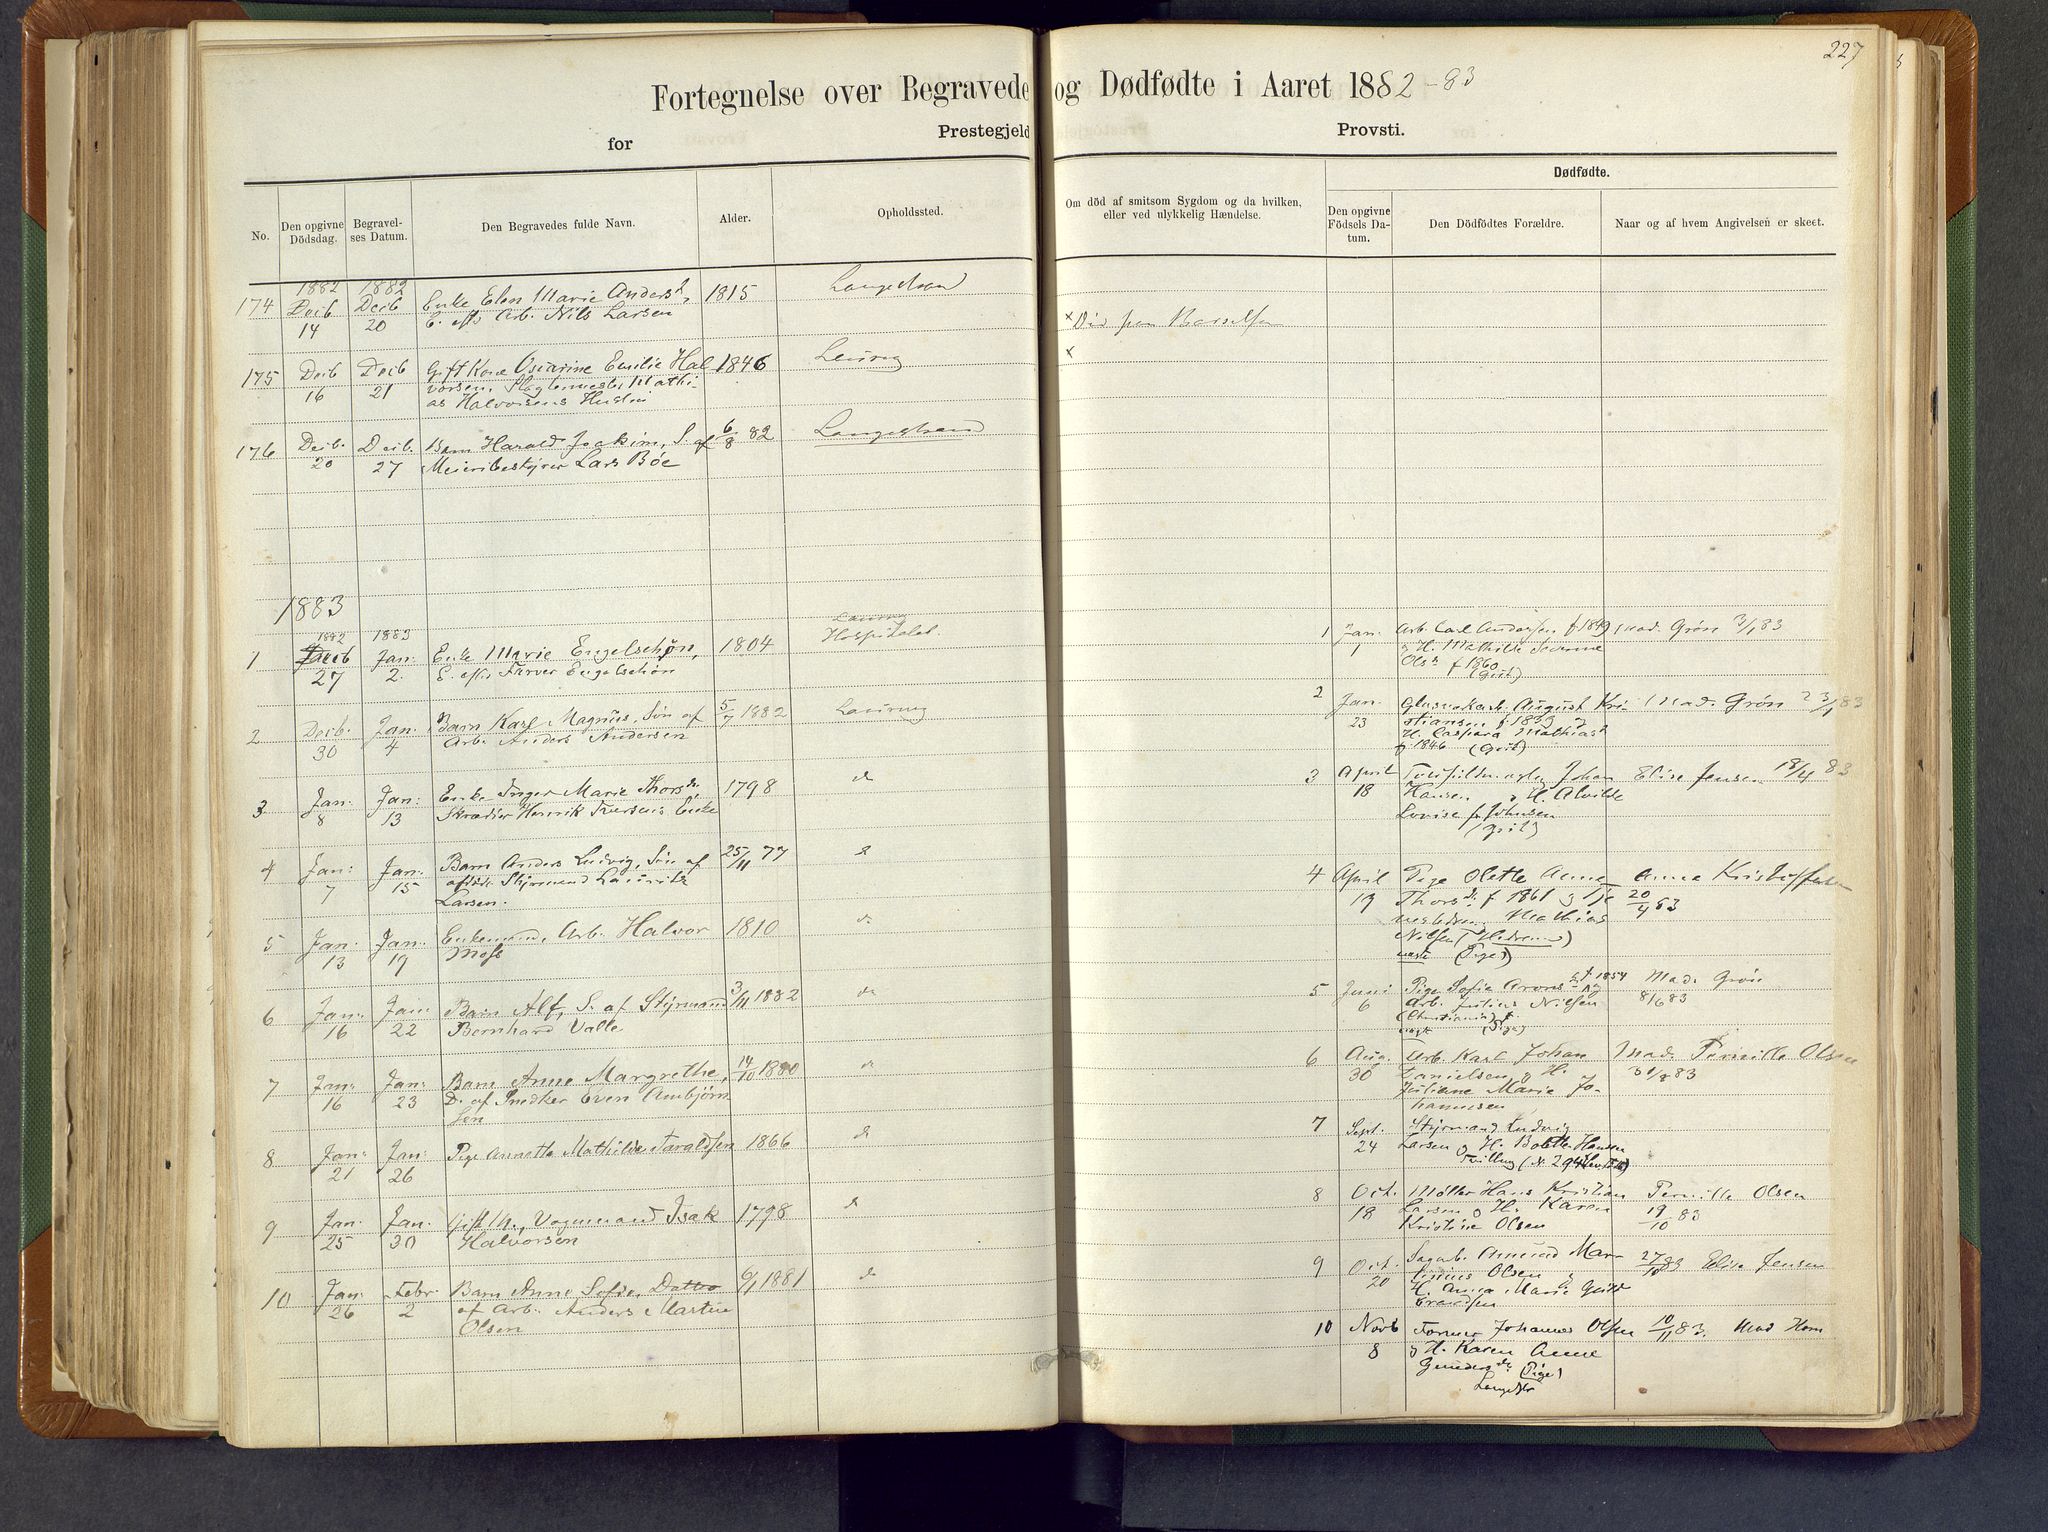 227
Fortegnelse over Begravede og Dødfødte i Aaret 1882-83
for Prestegjeld Provsti.
No.
Den opgivne Dödsdag.
Begravelses Datum.
Den Begravedes fulde Navn.
Alder.
Opholdssted.
Om död af smitsom Sygdom og da hvilken, eller ved ulykkelig Hændelse.
Dødfødte.
Den opgivne Födsels Datum.
Den Dödfödtes Forældre.
Naar og af hvem Angivelsen er skeet.
1882 1882
174 Decb 14 Decb 20 Enke Elen Marie Andersd, 1815 Langestrand
E. eft. Arb. Nils Larsen
175 Decb 16 Decb 21 Gift Kone Oscarine Emilie Hal 1846 Laurvig
vorsen,
as Halvorsens Hustru
176 Decb. 20 Decb. 27 Barn Harald Joakim, S. af 6/8 82 Langestrand
Meieribestyrer Lars Bøe
1883
1882 1883 Laurvig
1 Decb 27 Jan: 2. Enke Marie Engelschøn, 1804 Hospitalet
E. eft. Farver Engelschøn
2 Decb. 30 Jan. 4 Barn Karl Magnus, Søn af 5/7 1882 Laurvig
Arb. Anders Andersen
3 Jan: 8 Jan: 13 Enke Inger Marie Thorsd. 1798 do
Skrædder Henrik Iversens Enke
4 Jan: 7 Jan: 15 Barn Anders Ludvig, Søn af 25/11 77 do
afdøde Styrmand Lauritz
Larsen.
5 Jan: 13 Jan: 19 Enkemand, Arb. Halvor 1810 do
Moss
6 Jan: 16 Jan: 22 Barn Alf, S. af Styrmand 3/11 1882 do
Bernhard Valle
7 Jan: 16 Jan: 23 Barn Anne Margrethe, 14/10 1880 do
D. af Snedker Even Ambjørn
sen
8 Jan: 21 Jan: 26 Pige Annette Mathilde Taraldsen 1866 do
9 Jan: 25 Jan. 30 Gift M., Vognmand Isak 1798 do
Halvorsen
10 Jan: 26 Febr. 2 Barn Anne Sofie, Datter 6/1 1881 do
af Arb. Anders Martin
Olsen
1 Jan: 1 Arb. Carl Andersen f 1849 Mad. Grøn 3/1 83
& H. Mathilde Severine
Ols. f 1860
(Gut)
2 Jan. 23 August Kri Mad. Grøn 23/1 83
stiansen f. 1839 &
H. Caspara Mathiasd
f. 1846 (Gut)
3 April 18 Johan Elise Jensen 18/4 83
Hansen & H. Alvilde
Lovise f. Johnsen
4 April 19 Pige Olette Anne Anne Kristoffersen
Thorsd. f 1861 & Tje 20/4 83
Mathias
Nilsen
(Pige)
5 Juni 6 Pige Sofie Aronsd. f. 1854 Mad. Grøn
Arb. Julius Nielsen 8/6 83
(Christiania)
(Pige)
6 Aug. 30 Arb. Karl Johan Mad. Pernille Olsen
Danielsen & H. 83
Juliane Marie Jo-
hannesen
7 Sept. 24 Styrmand Ludvig
Larsen & H. Bolette Hansen
Tvilling
8 Oct. 18 Møller Hans Kristian Pernille Olsen
Larsen & H. Karen 19/10 83
Kristine Olsen
9 Oct. 20 Sagarb. Amund Mar- 27/10 83 Elise Jensen
tinius Olsen &
H. Anna Marie
10 Novb 8 Former Johannes Olsen 10/11 83. Mad Horn
& H. Karen Anne
Gundersd. (Pige)
Langestr